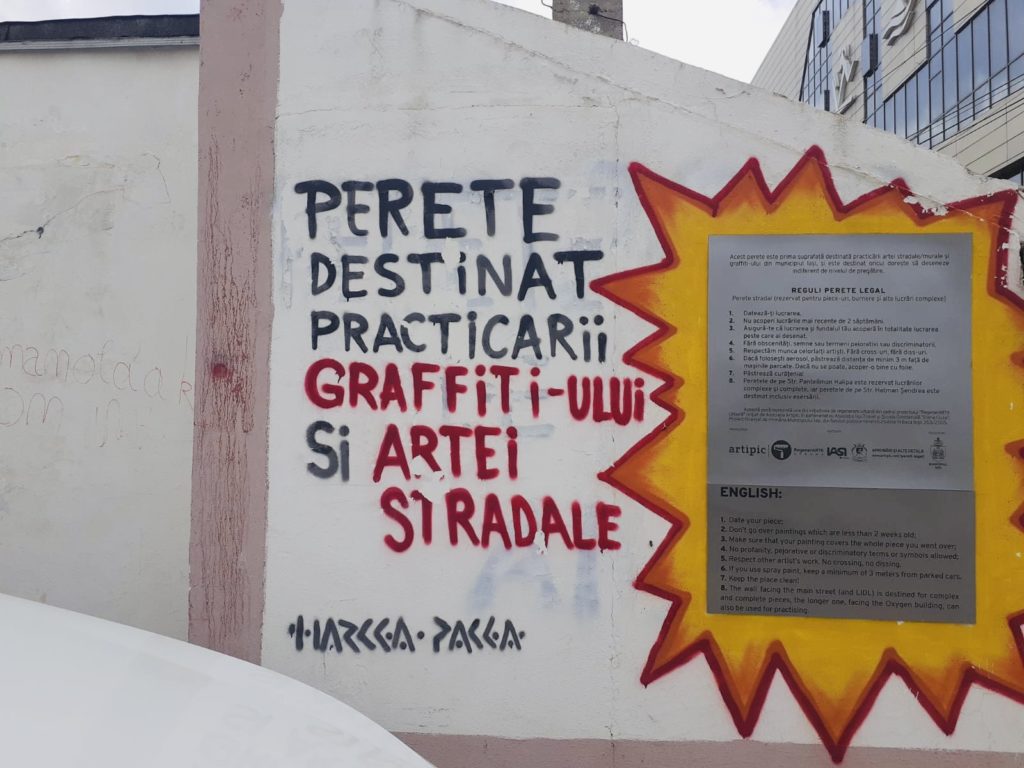 PERETE
DESTINAT
PRACTICARII
GRAFFITI-ULUI
SI ARTEI
STRADALE
Acest perete este prima suprafață destinată practicării artei stradale/murale și
graffiti-ului din municipiul Iași, și este destinat oricui dorește să deseneze
indiferent de nivelul de pregătire.
REGULI PERETE LEGAL
Perete stradal (rezervat pentru piece-uri, burnere și alte lucrări complexe)
1. Datează-ți lucrarea.
2. Nu acoperi lucrările mai recente de 2 săptămâni.
3. Asigură-te că lucrarea și fundalul tău acoperă în totalitate lucrarea
peste care ai desenat.
4. Fără obscenități, semne sau termeni peiorativi sau discriminatorii.
5. Respectăm munca celorlalți artiști. Fără cross-uri, fără diss-uri.
6. Dacă folosești aerosol, păstrează distența de minim 3 m față de
mașinile parcate. Dacă nu se poate, acoper-o bine cu folie.
7. Păstrează curățenia!
8. Peretele de pe Str. Pantelimon Halipa este rezervat lucrărilor
complexe și complete, iar peretele de pe Str. Hatman Șendrea este
destinat inclusiv exersării.
artipic
IAȘI
ENGLISH:
1. Date your piece;
2. Don't go over paintings which are less than 2 weeks old;
3. Make sure that your painting covers the whole piece you went over;
4. No profanity, pejorative or discriminatory terms or symbols allowed;
5. Respect other artist's work. No crossing, no dissing.
6. If you use spray paint, keep a minimum of 3 meters from parked cars.
7. Keep the place clean!
8. The wall facing the main street (and LIDL) is destined for complex
and complete pieces, the longer one, facing the Oxygen building, can
also be used for practising.